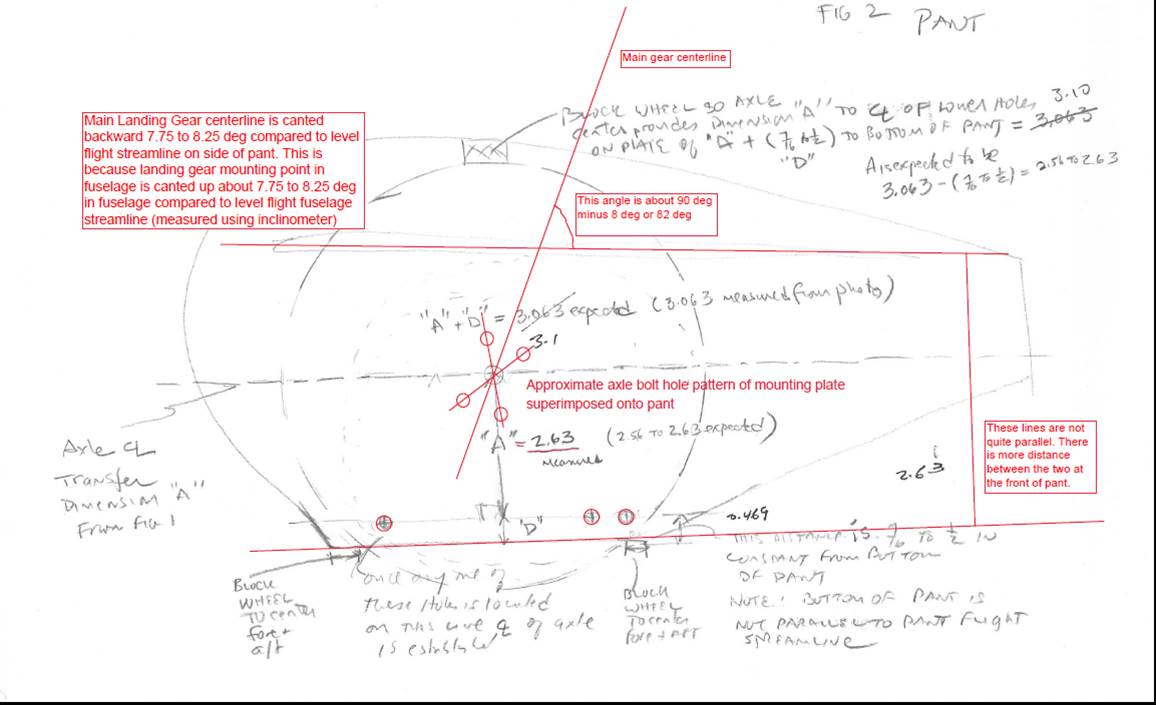 FIG 2 PANT
Main gear centerline
Main Landing Gear centerline is canted
backward 7.75 to 8.25 deg compared to level
flight streamline on side of pant. This is
because landing gear mounting point in
fuselage is canted up about 7.75 to 8.25 deg
in fuselage compared to level flight fuselage
streamline (measured using inclinometer)
BLOCK WHEEL SO AXLE
CENTER PROVIDES DIMENSION "A" TO ℄ OF LOWER HOLES 3.10
ON PLATE OF "A" + (7/16 to 1/2) TO BOTTOM OF PANT = 3.063
"D"
A is expected to be
3.063 - (7/16 TO 1/2) = 2.56 TO 2.63
This angle is about 90 deg
minus 8 deg or 82 deg
"A" + "D" = 3.063 expected (3.063 measured from photo)
3.1
Approximate axle bolt hole pattern of mounting plate
superimposed onto pant
"A" = 2.63 (2.56 TO 2.63 expected)
measured
These lines are not
quite parallel. There
is more distance
between the two at
the front of pant.
2.63
AXLE ℄
TRANSFER
DIMENSION "A"
FROM FIG 1
"D"
0.469
THIS DISTANCE IS 7/16 TO 1/2 IN
CONSTANT FROM BOTTOM
OF PANT
NOTE: BOTTOM OF PANT IS
NOT PARALLEL TO PANT FLIGHT
STREAMLINE
BLOCK
WHEEL
TO CENTER
fore +
aft
once any one of
these Holes is located
on this line ℄ of axle
is established
BLOCK
WHEEL
TO CENTER
fore + AFT